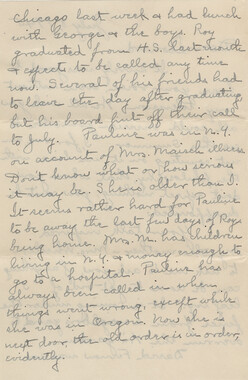 Chicago last week & had lunch
with George & the boys. Roy
graduated from H.S. last month
& expects to be called any time
now. Several of his friends had
to leave the day after graduating
but his board put off their call
to July. Pauline was in N.Y.
on account of Mrs. Maisch illness
Don't know what or how serious
it may be. She is older than I.
It seems rather hard for Pauline
to be away the last few days of Roys
being home. Mrs. M. has children
living in N.Y. & money enough to
go to a hospital. Pauline has
always been called in when
things went wrong, except while
she was in Oregon. Now she is
next door, the old order is in order,
evidently.